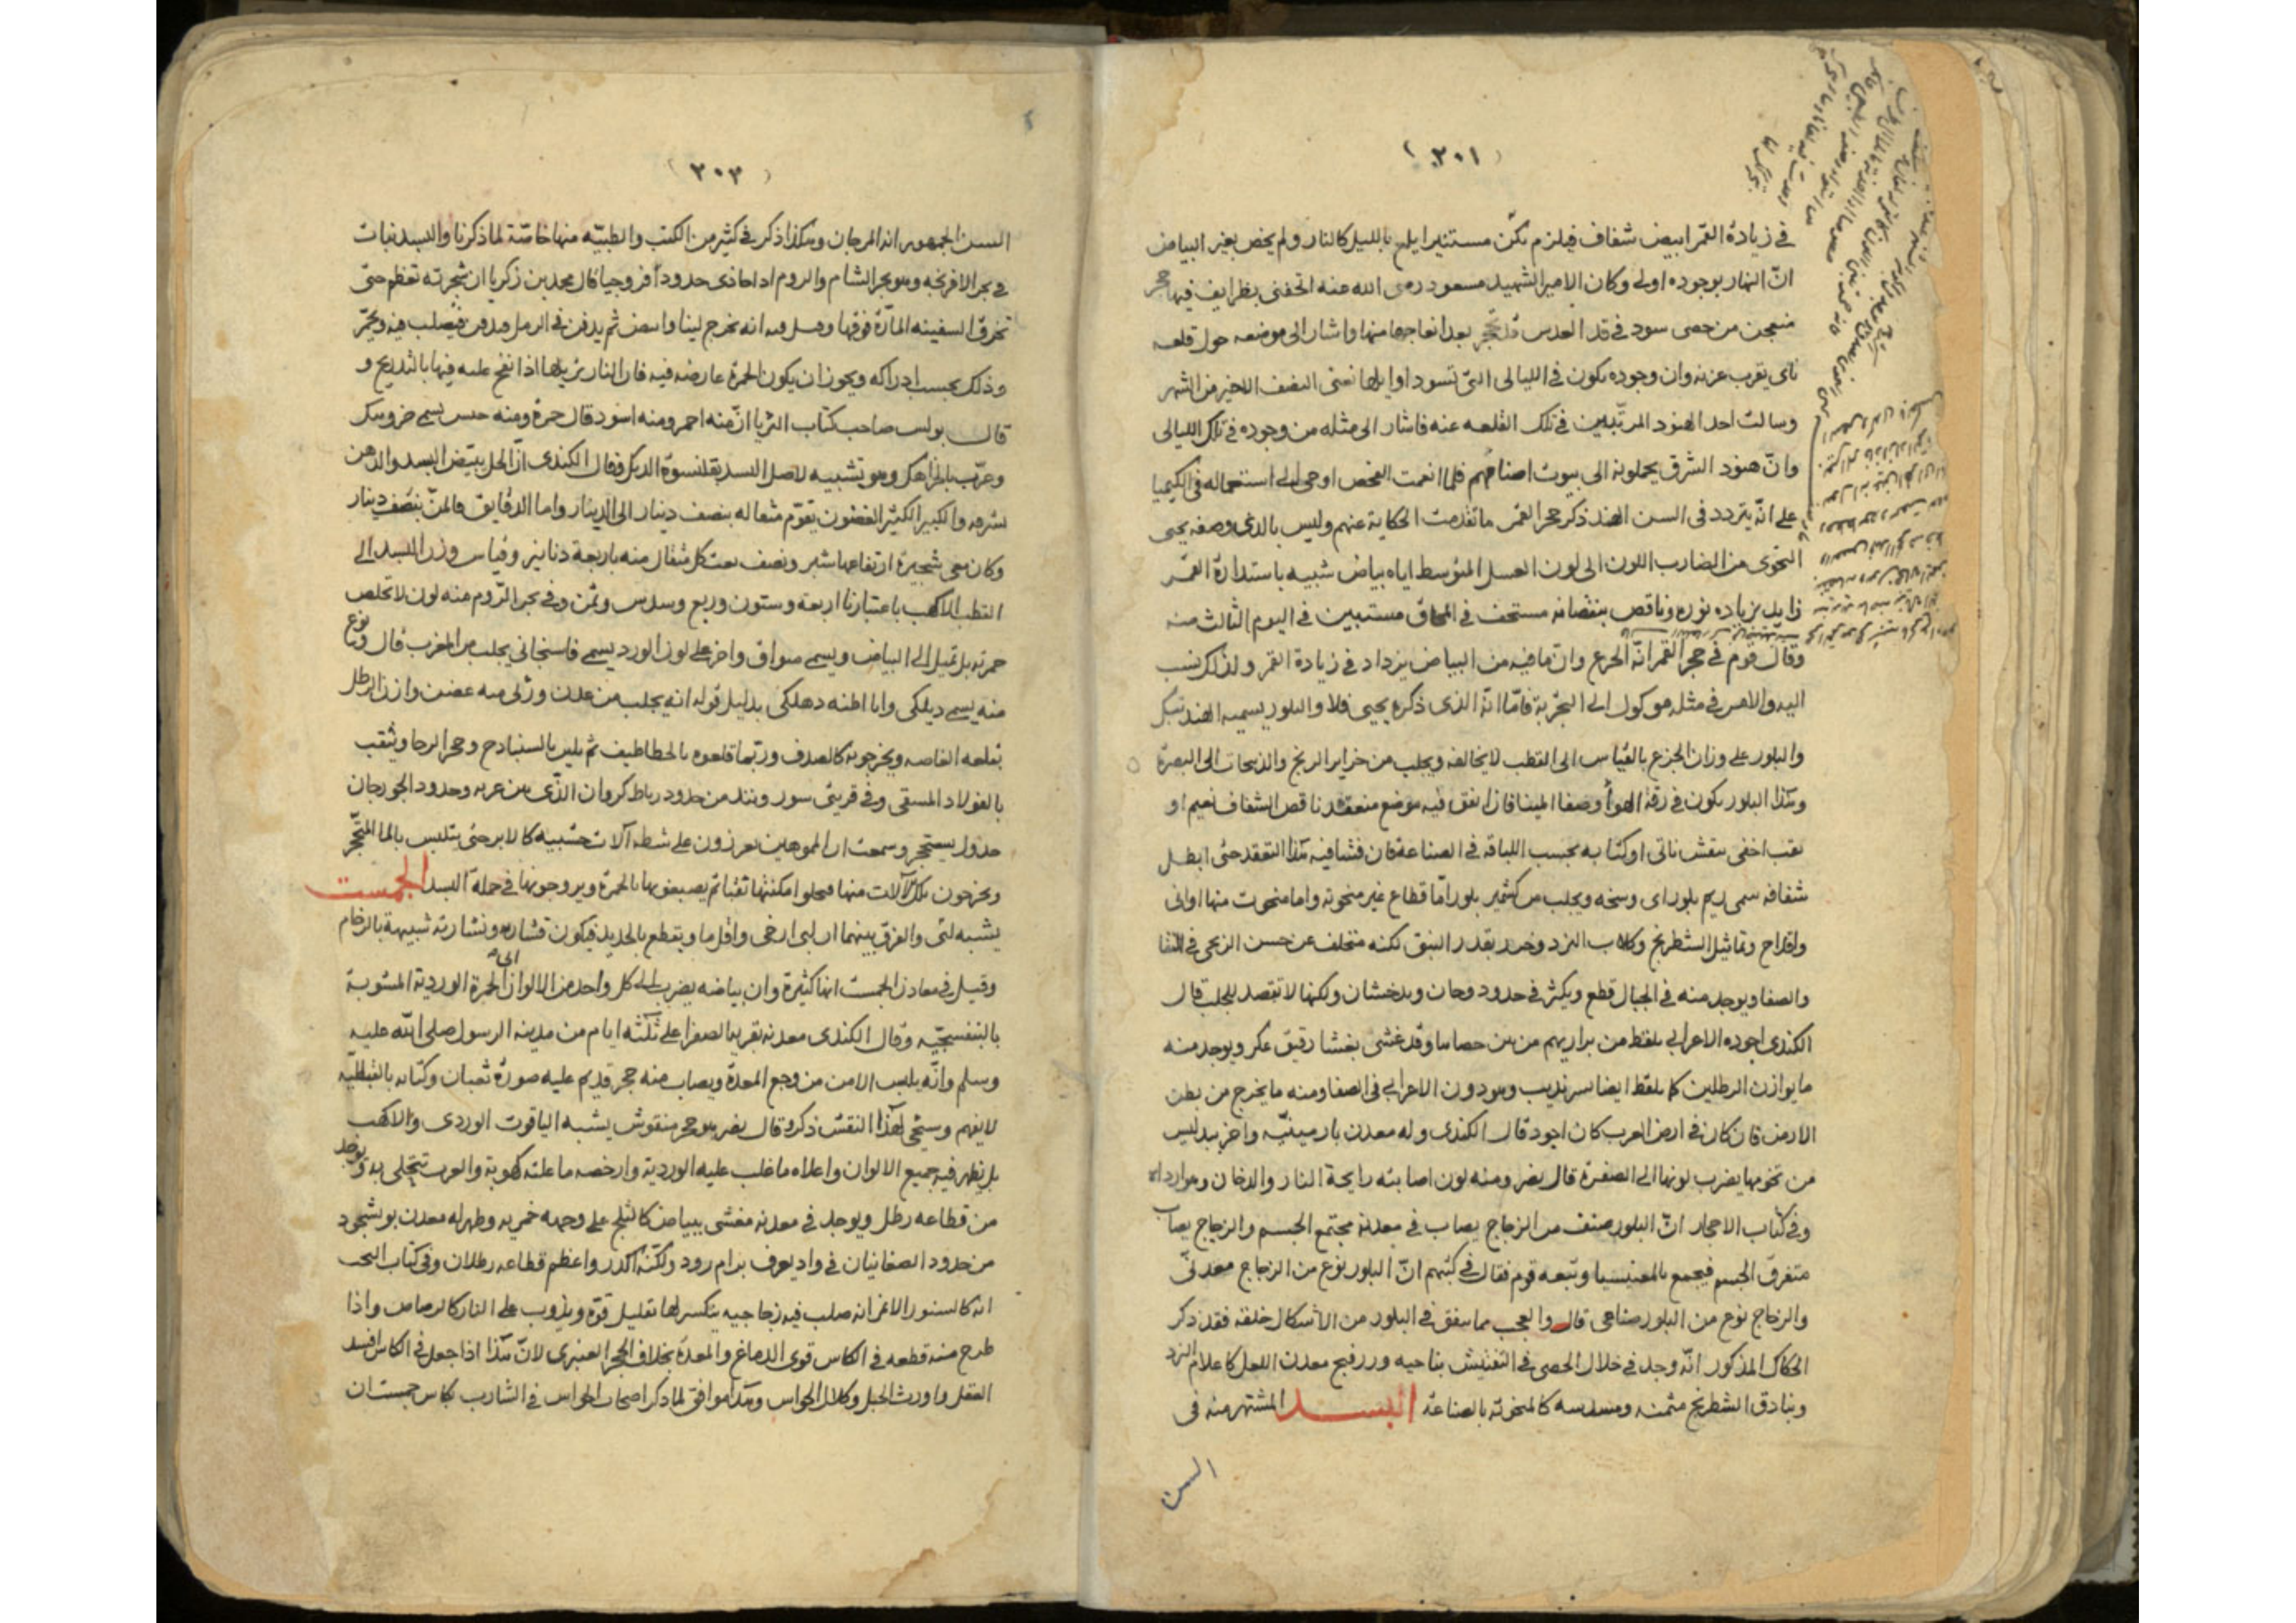 (٢٠١)
في زيادة القمر ابيض شفاف فيلزم يكن مستنيرا يلمع بالليل كالنار ولم يخص بغير البياض
انّ النهار بوجوده اولى وكان الامير الشهيد مسعود رضى الله عنه اتحفنى بظرايف فيها حجر
منعجن من حصى سود في قد العدس قد تحجر بعد انعاجها منها واشار الى موضعه حول قلعه
ناى بقرب غزنه وان وجوده يكون في الليالى التى تسود اوايلها نعنى النصف الاخير من الشهر
وسالت احد الهنود المرتّبين في تلك القلعه عنه فاشار الى مثله من وجوده في تلك الليالى
وانّ هنود الشرق يحملونه الى بيوت اصنامهم فلما انعمت الفحص اوحى الى استعماله في الكيميا
على انّه يتردد في السن الهند ذكر حجر القمر ما تقدمت الحكاية عنهم وليس بالذى وصفه يحيى
النحوى من الضارب اللون الى لون العسل المتوسط اياه بياض شبيه باستدارة القمر
زايد بزياده نوره وناقص بنقصانه مستخف في المحاق مستبين في اليوم الثالث منه
وقال قوم في حجر القمر انّه الجزع وان ما فيه من البياض يزداد في زيادة القمر ولذلك نسب
اليه والامر في مثله موكول الى التجربة فامّا انّه الذى ذكره يحيى فلا والبلور يسميه الهند
والبلور على وزان الجزع بالقياس الى القطب لا يخالفه ويجلب من جزاير الزنج والذبيحات الى البصرة
وهذا البلور يكون في رقة الهوأ وصفا الميناه فان اتفق فيه موضع منعقد ناقص الشفاف نعيم او
ثقب اخفى بنقش ناتى او كتابه بحسب اللياقة في الصناعة فان فشا فيه هذا التعقد حتى ابطل
شفافه سمى ريم بلور اى وسخه ويجلب من كشمير بلور امّا قطاع غير منحوته واما منحوت منها اوانى
واقداح وتماثيل الشطرنج وكلاب النرد وخرز بقدر البنق لكنه متخلف عن حسن الزنجى في النقا
والصفا ويوجد منه في الجبال قطع ويكثر في حدود وخان وبدخشان ولكنها لا تقصد للجلب قال
الكندى اجوده الاعرابى يلقط من براريهم من بين حصاها وقد غشى بغشا رقيق عكر ويوجد منه
ما يوازن الرطلين كما يلقط ايضا بسرنديب وهو دون الاعرابى في الصفا ومنه ما يخرج من بطن
الارض فان كان في ارض العرب كان اجود قال الكندى وله معدن بارمينيّه واخر ببدليس
من تخومها يضرب لونها الى الصفرة قال نصر ومنه لون اصابته رايحة النار والدخان وهو ارداه
وفي كتاب الاحجار انّ البلور صنف من الزجاج يصاب في معدنه مجتمع الجسم والزجاج يصاب
متفرق الجسم فيجمع بالمغنيسيا وتبعه قوم فقال في كتبهم انّ البلور نوع من الزجاج معدنىّ
والزجاج نوع من البلور صناعى قال والعجب مما يتفق في البلور من الأشكال خلقه فقد ذكر
الحكاك المذكور انّه وجد في خلال الحصى في التفتيش بناحيه ورزفنج معدن اللعل كاعلام النرد
وبنادق الشطرنج مثمنه ومسدسه كالمنحوته بالصناعة البسد المشتهر منه في
السن
(٢٠٣)
السن الجمهور انه المرجان وهكذا ذكر في كثير من الكتب والطبيّه منها خاصّة لما ذكرنا والبسد نبات
في بحر الافرنجه وهو بحر الشام والروم اذا حاذى حدود افروجيا قال محمد بن زكريا ان شجرته تعظم حتى
تخرق السفينه المارّة فوقها وقيل فيه انه يخرج لينا وابيض ثم يدفن في الرمل فيصلب فيه ويحمرّ
وذلك بحسب ادراكه ويجوز ان يكون الحمرة عارضه فيه فان النار تزيلها اذا نفخ عليه فيها بالتدريج و
قال بولس صاحب كتاب الثريا انّ منه احمر ومنه اسود قال حمزة ومنه جنس يسمى خروهك
وعرّب بالخراهك وهو تشبيه لاصل البسد بقلنسوة الديك وقال الكندى انّ الخل يبيّض البسد والدهن
يشرقه والكبير الكثير الغصون يقوّم مثقاله بنصف دينار الى الدينار واما الدقايق فالمنّ بنصف دينار
وكان معى شجيرة ارتفاعها شبر ونصف بعت كل مثقال منه باربعة دنانير وقياس وزن البسد الى
القطب الاكهب باعتبارنا اربعة وستون وربع وسدس وثمن وفى بحر الرّوم منه لون لا تخلص
حمرته بل تميل الى البياض ويسمى واخر على لون الورد يسمى فاسنجانى يجلب من المغرب قال ونوع
منه يسمى ديلكى وانا اظنه دهلكى بدليل قوله انه يجلب من عدن وزن الرطل
تقلعه الغاصه ويخرجونه كالصدف وربّما قلعوه بالخطاطيف ثم يلين بالسنبادج وحجر الرحا ويثقب
بالفولاد المسقى وفى قريتى سور وبند من حدود رباط كروان الذّى بين غزنه وحدود الجوزجان
جدول يستحجر وسمعت ان المموهين يغرزون على شطه آلات خشبيه كالابر حتى يتلبس بالما المتحجّر
ويخرجون تلك الآلات منها فيخلو امكنتها ثقبا ثم يصبغونها بالحمرة ويروجونها في جملة البسد الجمست
يشبه لثى والفرق بينهما ان ارخى واقل ما ويقطع بالحديد فيكون قشاره ونشارته شبيهة بالرخام
وقيل في معادن الجمست انها كثيرة وان بياضه يضرب الى كل واحد من الالوان الى الحمرة الوردية المشوبة
بالبنفسجيّه وقال الكندى معدنه بقرية الصفرا على ثلثة ايام من مدينه الرسول صلى الله عليه
وسلم وانّه يلبس الامن من وجع المعدة ويصاب منه حجر قديم عليه صورة ثعبان وكتابه بالقبطيّه
لا يفهم وسيجى لهذا النقش ذكر وقال نصر هو حجر منقوش يشبه الياقوت الوردى والاكهب
بل يظهر فيه جميع الالوان واعلاه ما غلب عليه الوردية وارخصه ما علته كهوبة والعرب تتحلى به ويوجد
من قطاعه رطل ويوجد في معدنه مغشى ببياض كالثلج على وجهه خمريه وظهر له معدن بوشجرد
من حدود الصغانيان في واد يعرف برام رود ولكنّه اكدر واعظم قطاعه رطلان وفى كتاب النخب
انه كالسنور الاغر انه صلب فيه زجاجيه ينكسر لها بقليل قوّة ويذوب على النار كالرصاص واذا
طرح منه قطعه في الكاس قوى الدماغ والمعدة بخلاف الحجر العنبرى لانّ هذا اذا جعل في الكاس افسد
العقل واورث الخبل وكلال الحواس وهذا موافق لما ذكر اصحاب الخواص في الشارب بكاس جمست ان